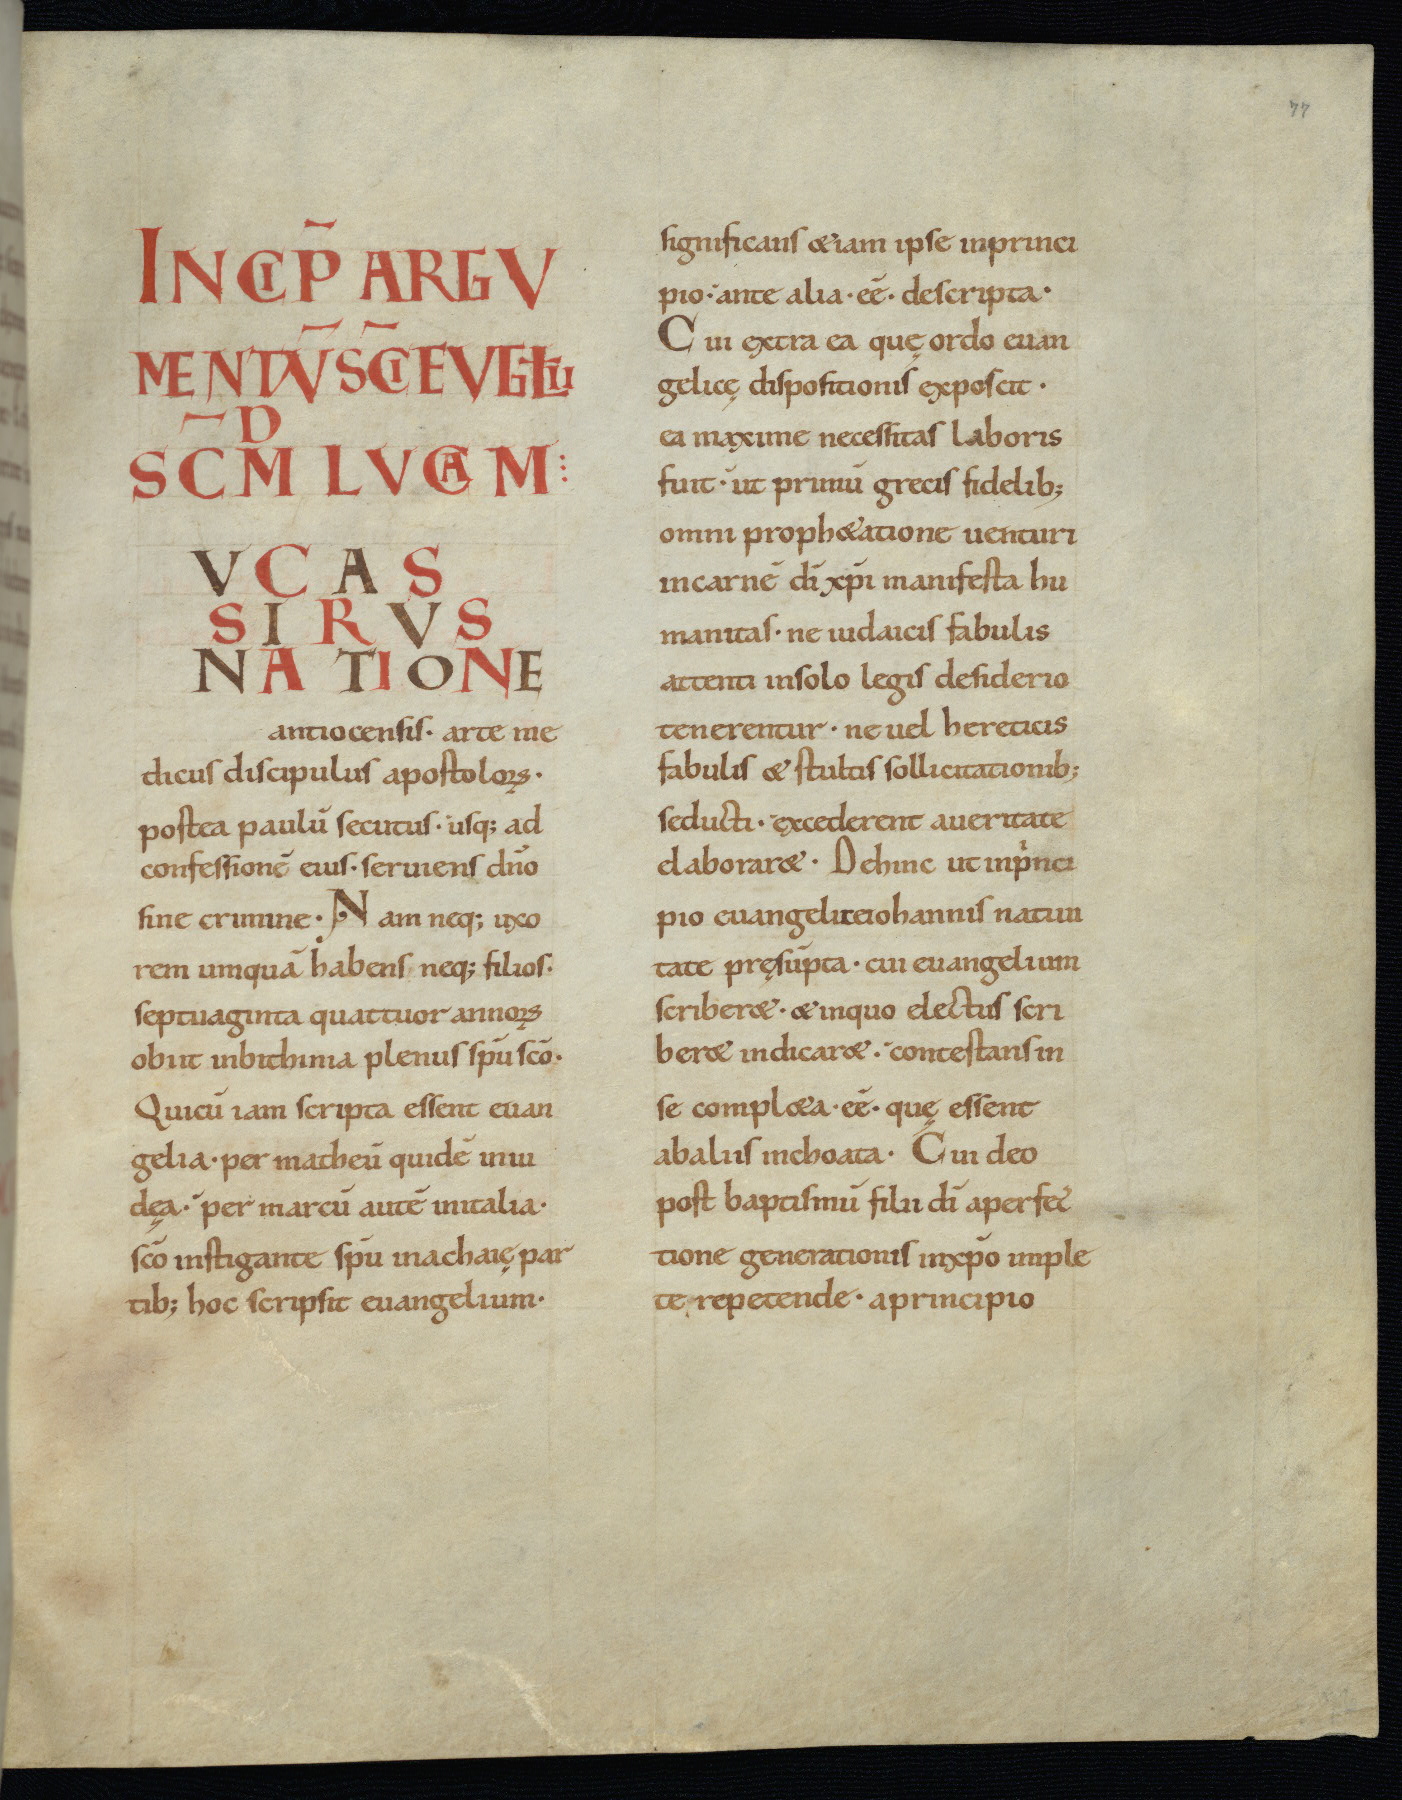 77
INCIP̄ ARGV
MENTV̄ SC̄I EVGĿII
SC̄DM LVCAM:
VCAS
SIRVS
NATIONE
antiocensis· arte me
dicus discipulus apostoloꝝ·
postea paulū secutus· usq; ad
confessionē eius· seruiens dn̄o
sine crimine· Nam neq; uxo
rem umquā habens neq; filios·
septuaginta quattuor annoꝝ
obiit inbithinia plenus sp̄u sc̄o·
Quicū iam scripta essent euan
gelia· per matheū quidē iniu
dęa· per marcū autē initalia·
sc̄o instigante sp̄u inachaię par
tib; hoc scripsit euangelium·
significans &iam ipse inprinci
pio· ante alia· eē· descripta·
Cui extra ea quę ordo euan
gelicę dispositionis exposcit·
ea maxime necessitas laboris
fuit· ut primū grecis fidelib;
omni proph&atione uenturi
incarnē dī xp̄i manifesta hu
manitas· ne iudaicis fabulis
attenti insolo legis desiderio
tenerentur· ne uel hereticis
fabulis & stultis sollicitationib;
seducti· excederent aueritate
elaborar&· Dehinc ut inp̍nci
pio euangelii eiohannis natiui
tate pręsūpta· cui euangelium
scriber&· & inquo electus scri
ber& indicar&· contestans in
se compl&a· eē· quę essent
abaliis inchoata· Cui deo
post baptismū filii dī aperfec
tione generationis inxp̄o imple
te repetende· aprincipio